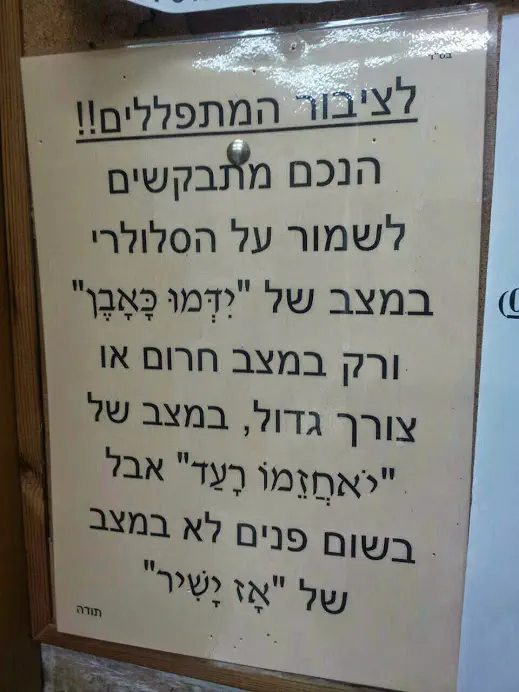 בס"ד
לציבור המתפללים!!
הנכם מתבקשים
לשמור על הסלולרי
במצב של "יִדְּמוּ כָּאָבֶן"
ורק במצב חרום או
צורך גדול, במצב של
"יֹאחֲזֵמוֹ רָעַד" אבל
בשום פנים לא במצב
של "אָז יָשִׁיר"
תודה